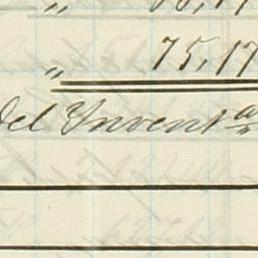 „ 75,17
del Invent.a